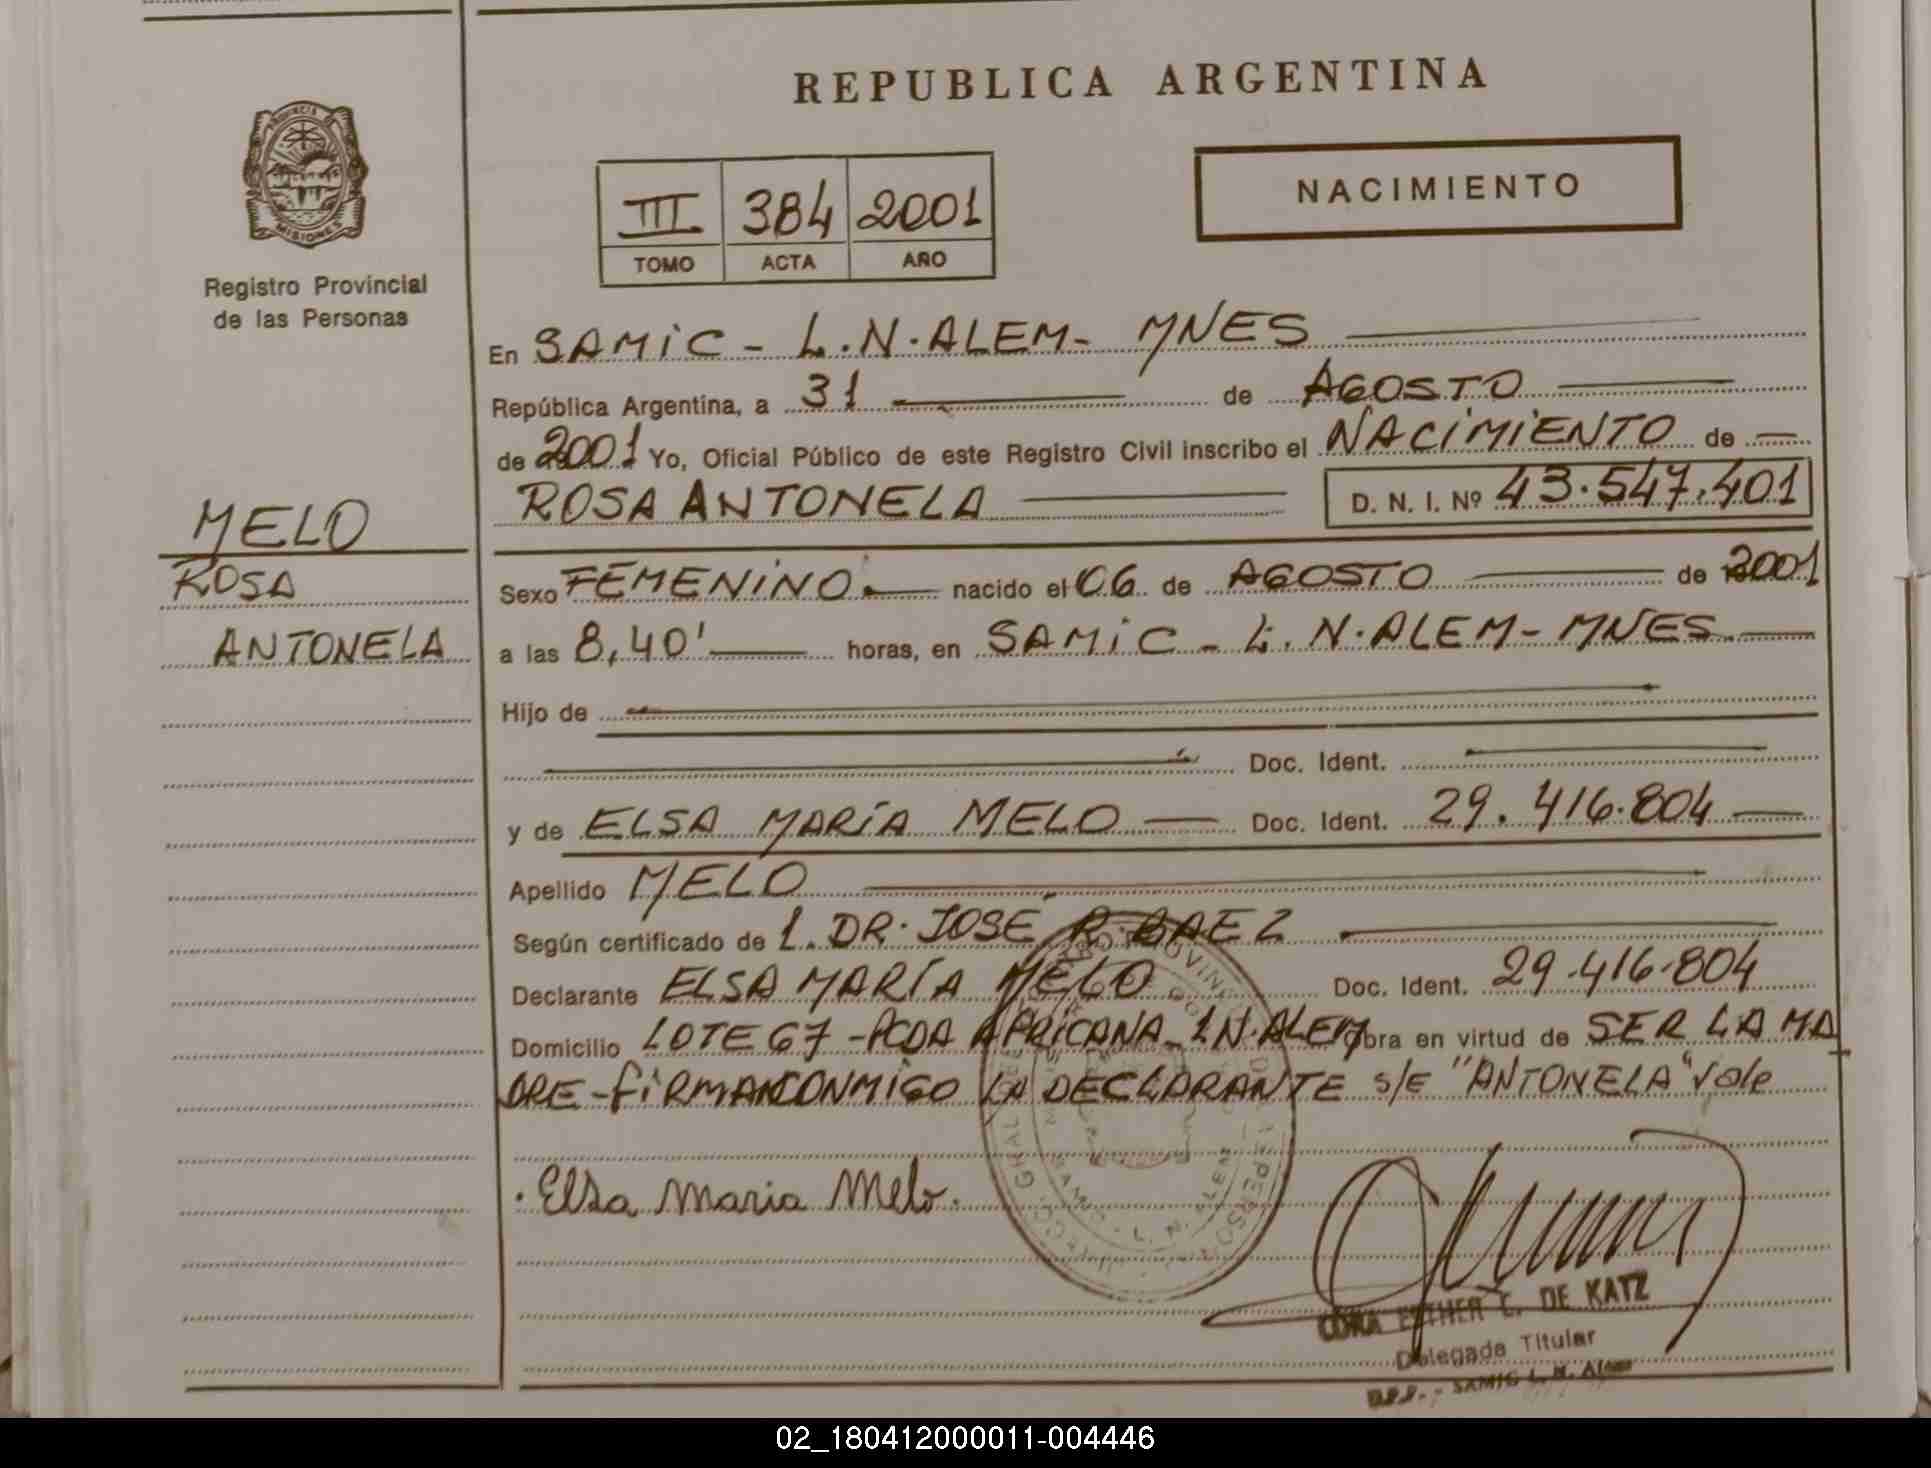 REPUBLICA ARGENTINA
PROVINCIA DE
MISIONES
Registro Provincial
de las Personas
III 384 2001
TOMO ACTA AÑO
NACIMIENTO
En SAMIC - L.N.ALEM- MNES
República Argentina, a 31 de AGOSTO
de 2001 Yo, Oficial Público de este Registro Civil inscribo el NACIMIENTO de
ROSA ANTONELA D. N. I. Nº 43.547.401
MELO
ROSA
ANTONELA
Sexo FEMENINO nacido el 06 de AGOSTO de 2001
a las 8,40' horas, en SAMIC - L.N.ALEM-MNES
Hijo de
Doc. Ident.
y de ELSA MARÍA MELO Doc. Ident. 29.416.804
Apellido MELO
Según certificado de 1. DR. JOSÉ R. BAEZ
Declarante ELSA MARÍA MELO Doc. Ident. 29.416.804
Domicilio LOTE 67 -PCDA AFRICANA- L N.ALEM Obra en virtud de SER LA MA
DRE-FIRMA CONMIGO LA DECLARANTE s/e "ANTONELA" Vale
Elsa Maria Melo.
ESTHER C. DE KATZ
Delegada Titular
SAMIC L. N. Alem
02_180412000011-004446